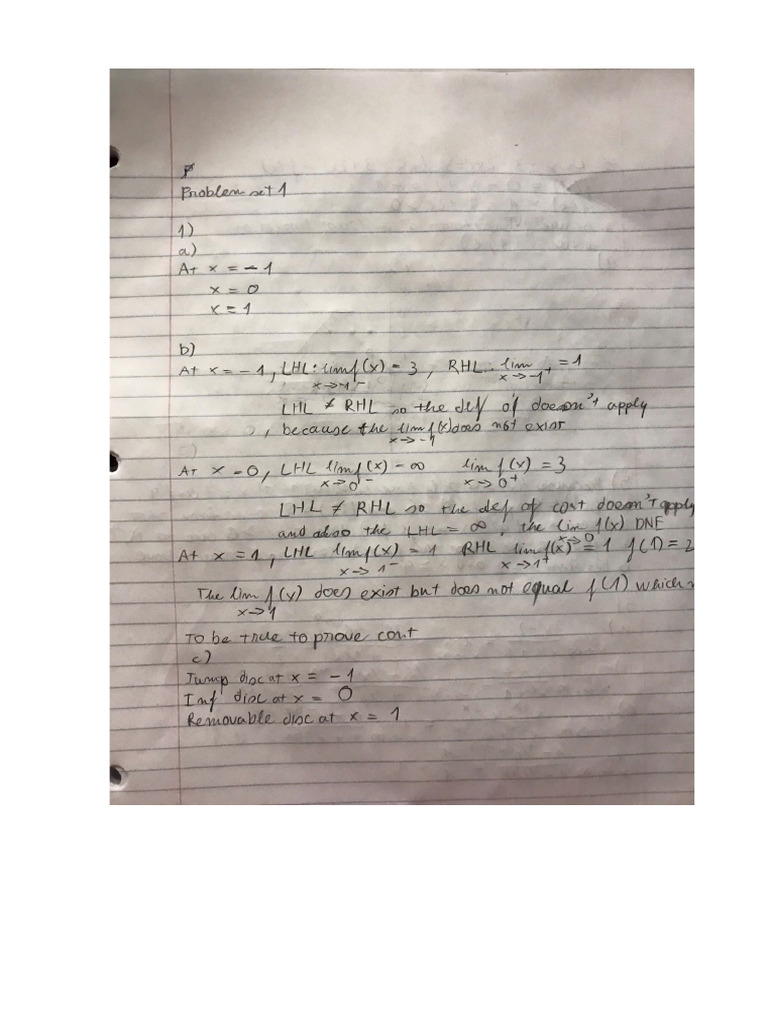 Problem set 1
1)
a)
At x = -1
x = 0
x = 1
b)
At x = -1, LHL: lim f(x) = 3, RHL: lim = 1
x→-1⁻ x→-1⁺
LHL ≠ RHL so the def of doesn't apply
, because the lim f(x) does not exist
x→-1
At x = 0, LHL lim f(x) - ∞ lim f(x) = 3
x→0⁻ x→0⁺
LHL ≠ RHL so the def of cont doesn't apply
and also the LHL = ∞, the lim f(x) DNE
x→0
At x = 1, LHL lim f(x) = 1 RHL lim f(x) = 1 f(1) = 2
x→1⁻ x→1⁺
The lim f(x) does exist but does not equal f(1) which
x→1
to be true to prove cont
c)
Jump disc at x = -1
Inf disc at x = 0
Removable disc at x = 1